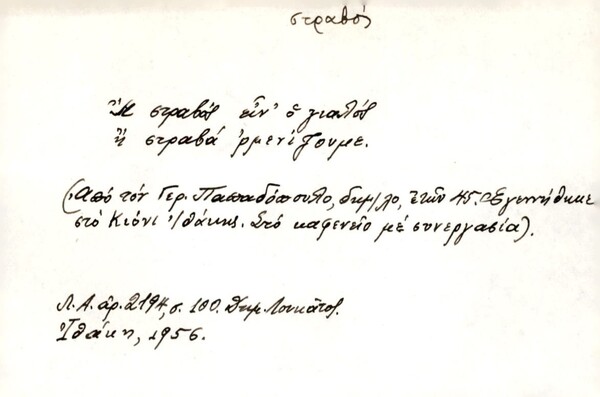 στραβός
Ἤ στραβός εἶν' ὁ γιαλός
ἤ στραβά ἁρμενίζουμε.
(Ἀπό τόν Γερ. Παπαδόπουλο, δημ/λο, ἐτῶν 45. Ἐγεννήθηκε
στό Κιόνι Ἰθάκης. Στό καφενεῖο μέ συνεργασία).
Λ. Α. ἀρ. 2194, σ. 100. Δημ. Λουκᾶτος.
Ἰθάκη, 1956.